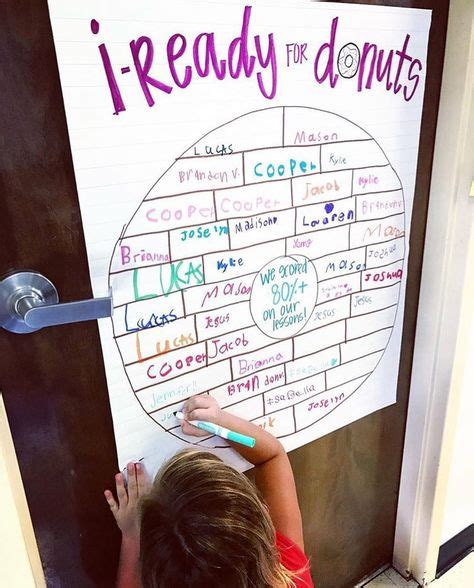 i-Ready FOR donuts
Mason
LUCAS
Kylie
Brandon V. Cooper
Jacob Kylie
Cooper Cooper
Lauren Brandon V.
Joselyn Madison
Brianna Jacob
Yang Joshua
LUCAS Kylie
We scored
80%+
on our
lessons!
Mason Joshua
Mason
LUCAS Jesus
Jesus Jesus
LUCAS Jacob
Cooper Brianna
Jennifer Brandon V. Isabella
Isabella Joselyn